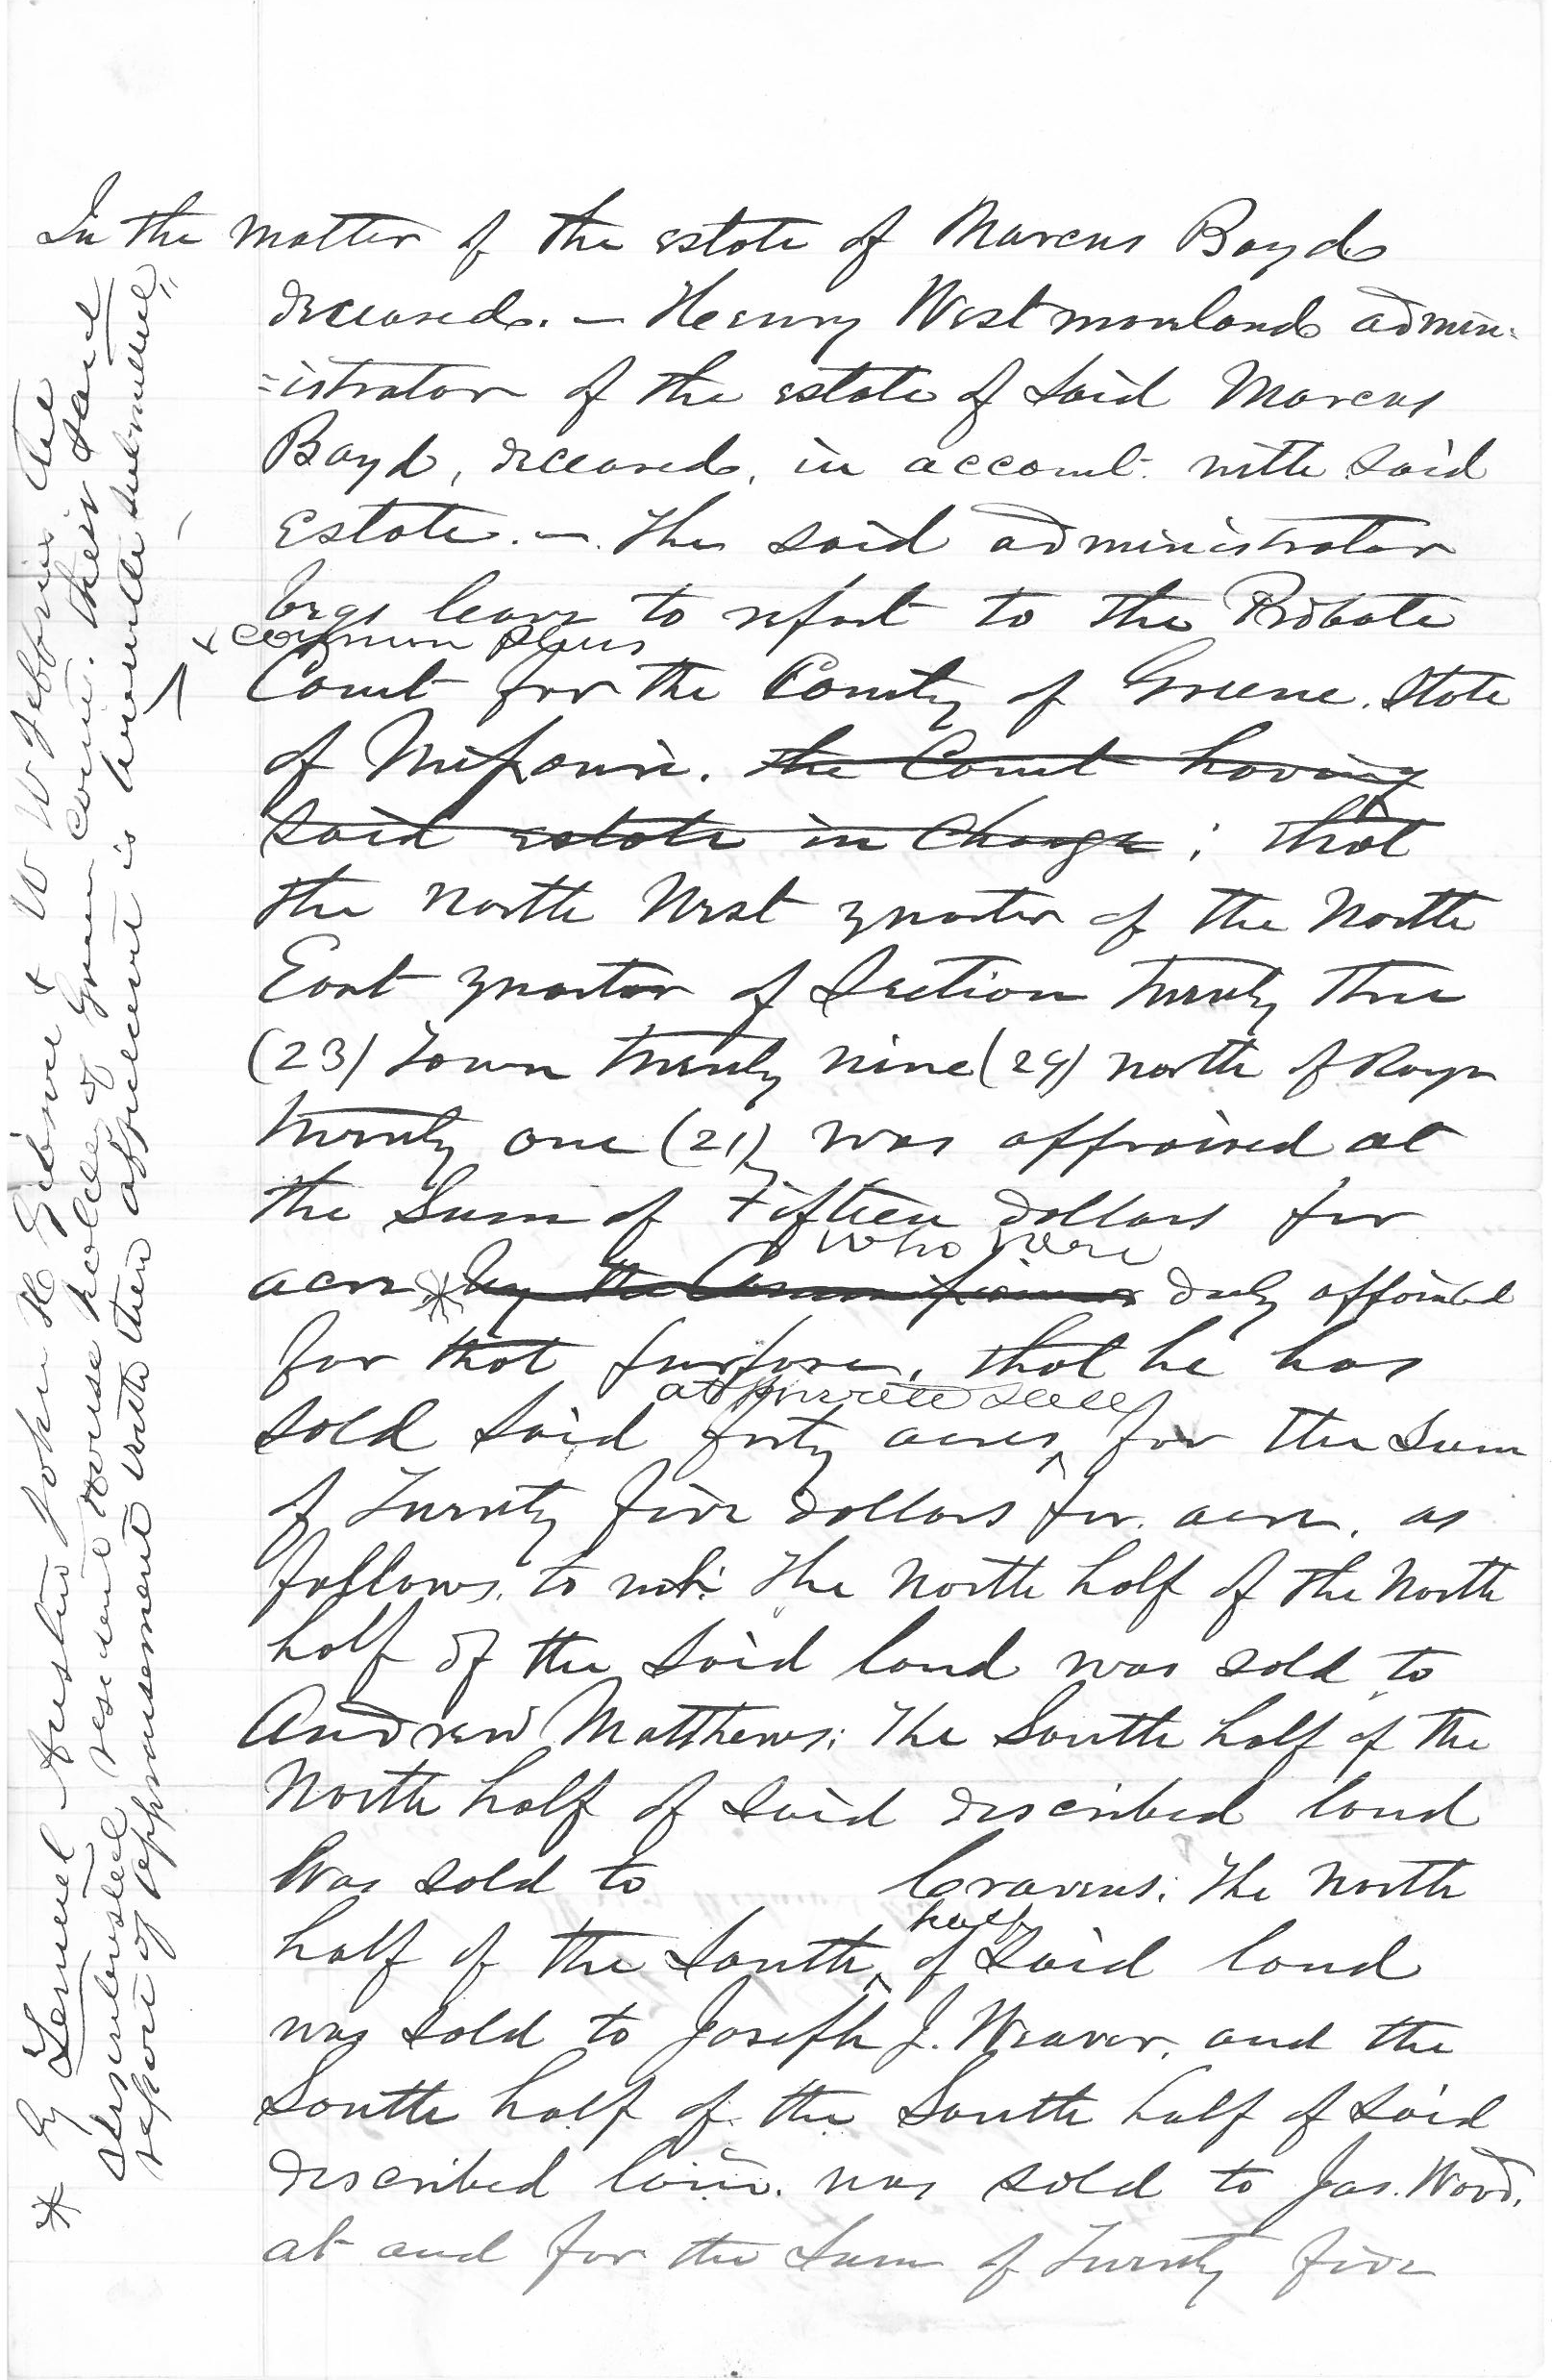 In the matter of the estate of Marcus Boyd
deceased. — Henry Westmoreland admin-
=istrator of the estate of said Marcus
Boyd, deceased, in account with said
Estate. —. The said administrator
begs leave to report to the Probate
& common pleas
Court for the County of Greene. State
of Missouri. the Court having
said estate in charge ; that
the North West quarter of the North
East quarter of Section Twenty three
(23) Town twenty nine (29) north of Range
twenty one (21) was appraised at
the sum of Fifteen dollars per
who were
acre * by the Commissioners duly appointed
for that purpose, that he has
at private sale
sold said forty acres, for the sum
of Twenty five dollars per acre, as
follows, to wit: The North half of the North
half of the said land was sold to
Andrew Matthews; The South half of the
North half of said described land
was sold to Cravens; The North
half
half of the South of said land
was sold to Joseph J. Weaver, and the
South half of the South half of said
described land was sold to Jas. Wood,
at and for the sum of Twenty five
* by Lemuel Austin John H Gibson & W W three
disinterested resident house holders of Green County. their said
report of appraisement with their is herewith submitted"